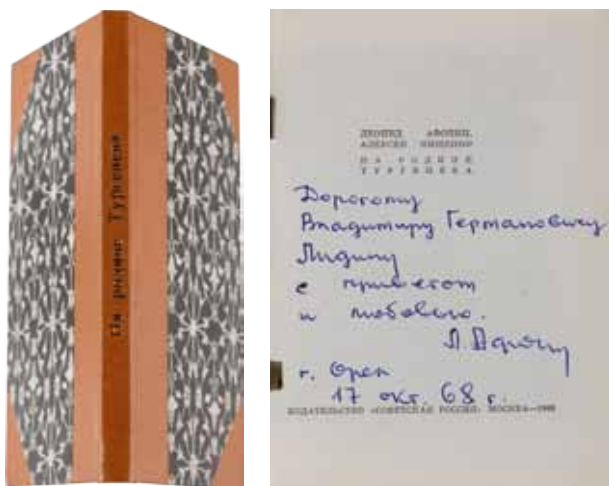 На родине Тургенева
ЛЕОНИД АФОНИН,
АЛЕКСЕЙ МИЩЕНКО
НА РОДИНЕ
ТУРГЕНЕВА
Дорогому
Владимиру Германовичу
Лидину
с приветом
и любовью.
Л. Афонин
г. Орел
17 окт. 68 г.
ИЗДАТЕЛЬСТВО «СОВЕТСКАЯ РОССИЯ» МОСКВА—1968